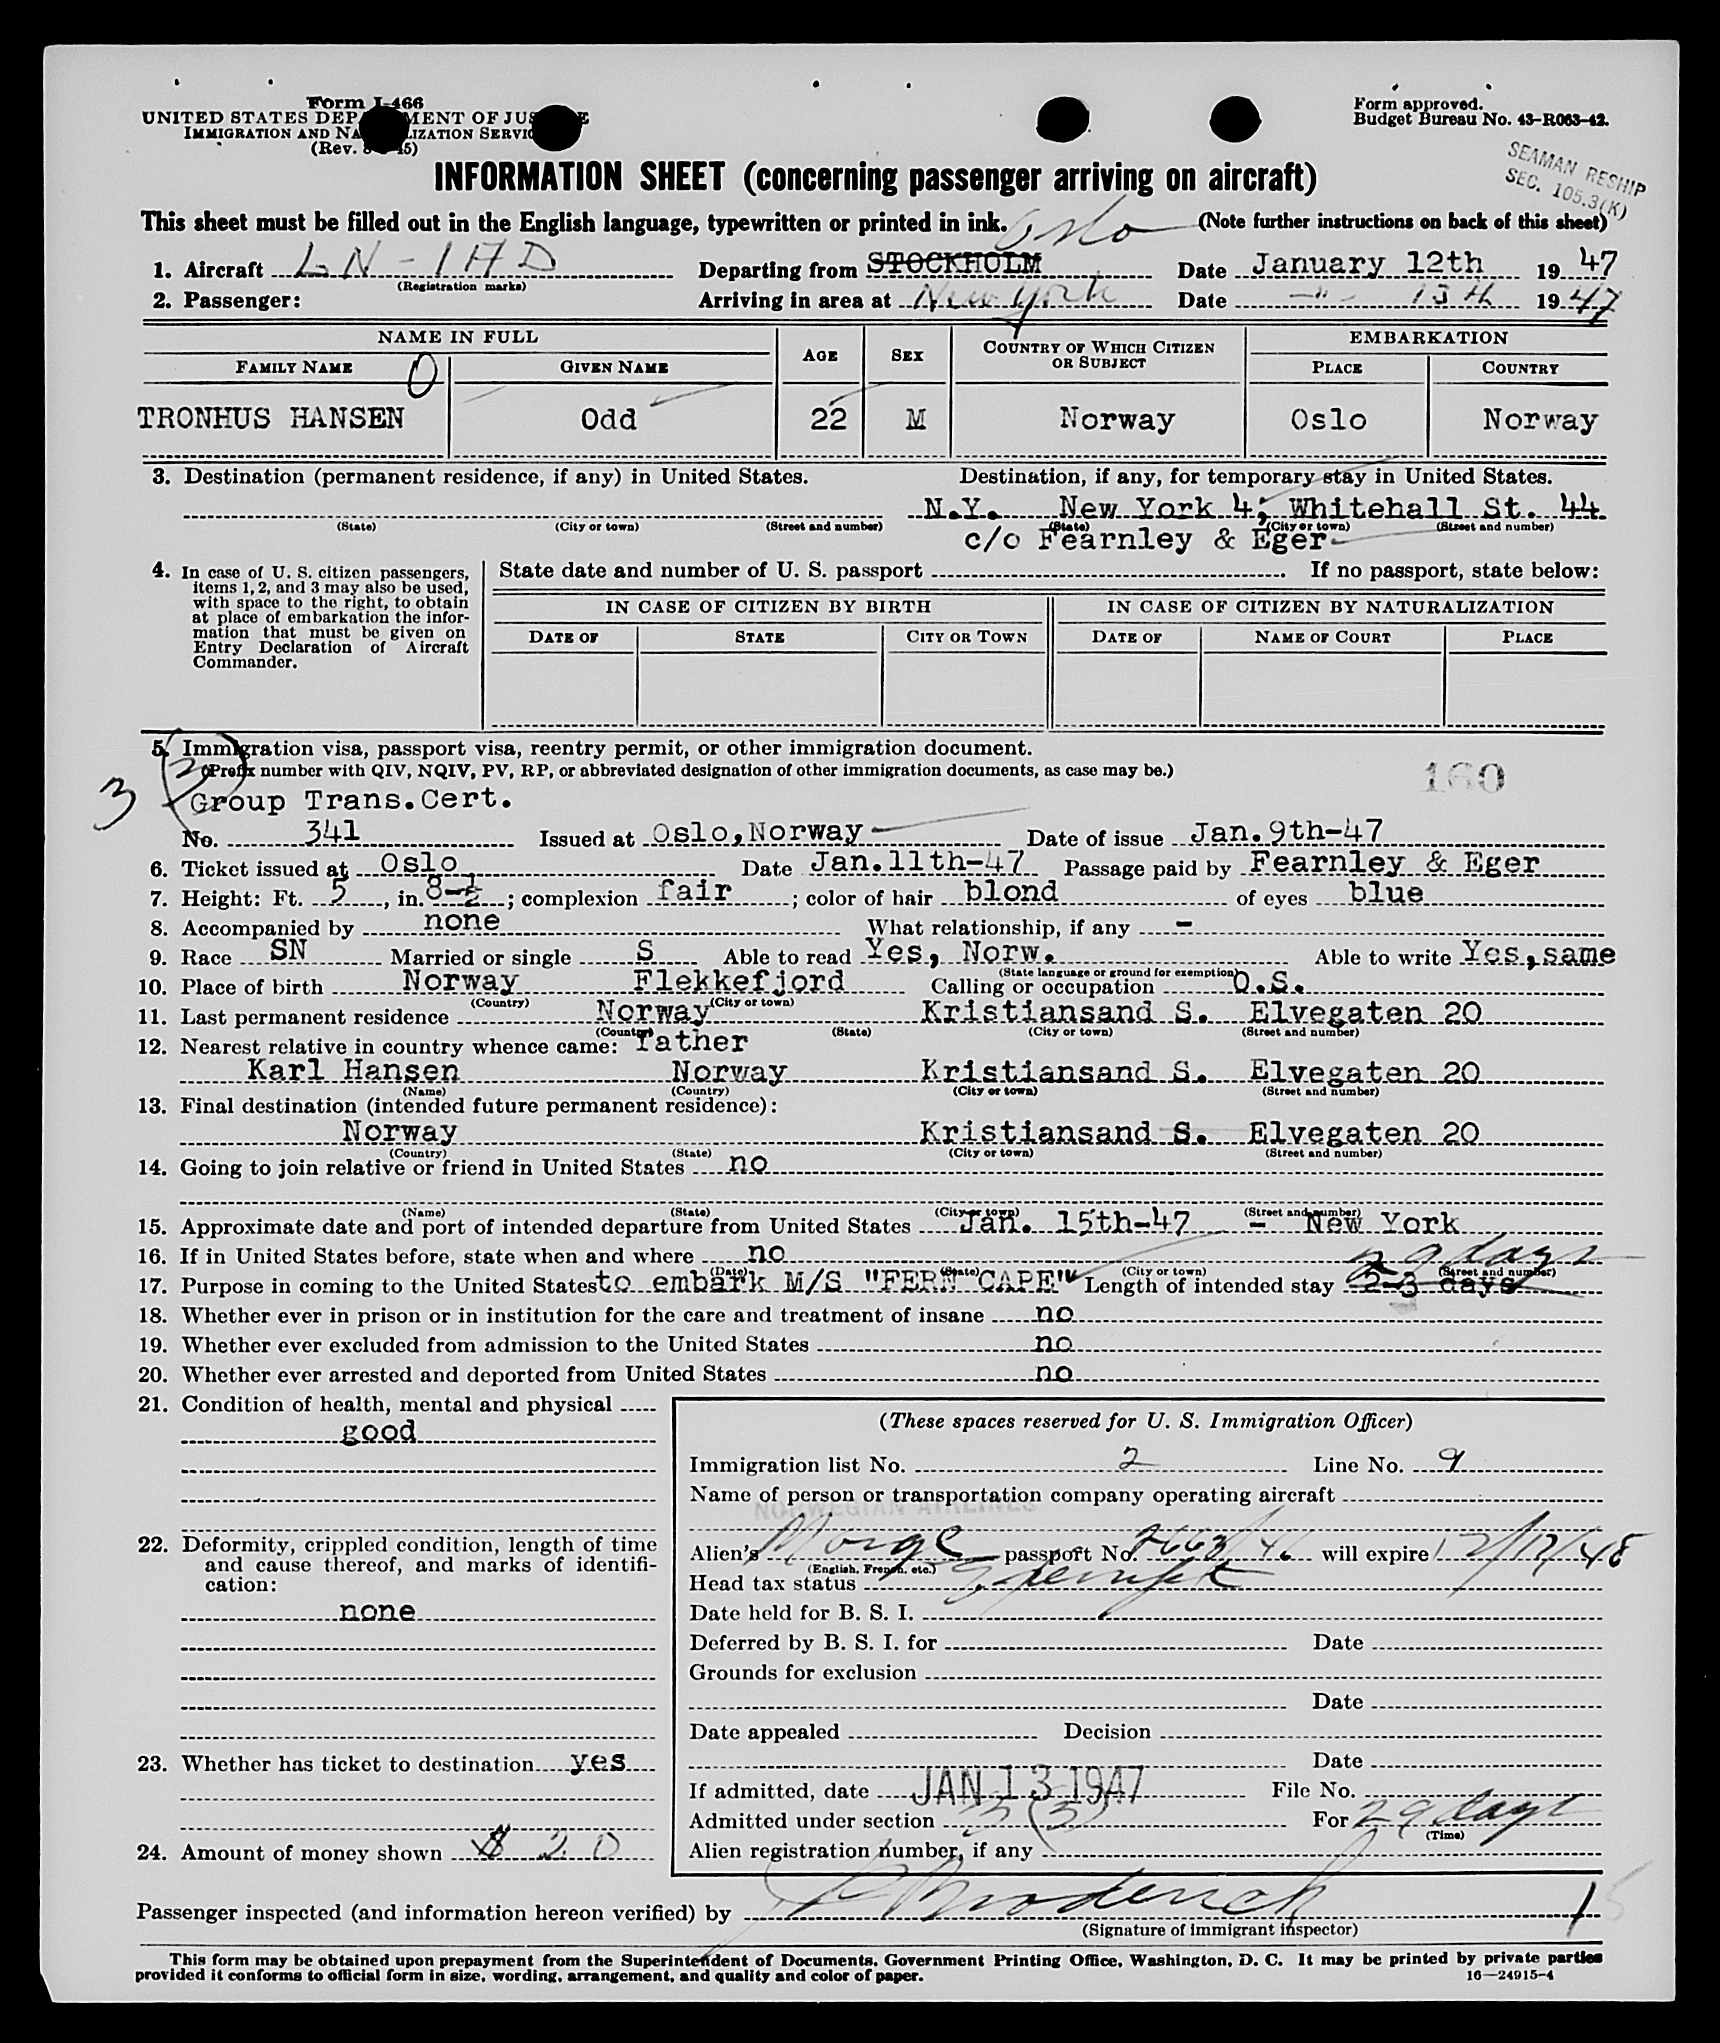 Form I-466
UNITED STATES DEPARTMENT OF JUSTICE
IMMIGRATION AND NATURALIZATION SERVICE
(Rev. 45)
Form approved.
Budget Bureau No. 43-R063-42.
SEAMAN RESHIP
SEC. 105.3(K)
INFORMATION SHEET (concerning passenger arriving on aircraft)
This sheet must be filled out in the English language, typewritten or printed in ink. (Note further instructions on back of this sheet)
Oslo
1. Aircraft LN-IAD Departing from STOCKHOLM Date January 12th 1947
(Registration marks)
2. Passenger: Arriving in area at New York Date -"- 13th 1947
NAME IN FULL AGE SEX COUNTRY OF WHICH CITIZEN OR SUBJECT EMBARKATION
FAMILY NAME O GIVEN NAME PLACE COUNTRY
TRONHUS HANSEN Odd 22 M Norway Oslo Norway
3. Destination (permanent residence, if any) in United States. Destination, if any, for temporary stay in United States.
N.Y. New York 4, Whitehall St. 44
(State) (City or town) (Street and number) (State) (City or town) (Street and number)
c/o Fearnley & Eger
4. In case of U. S. citizen passengers, items 1, 2, and 3 may also be used, with space to the right, to obtain at place of embarkation the information that must be given on Entry Declaration of Aircraft Commander.
State date and number of U. S. passport If no passport, state below:
IN CASE OF CITIZEN BY BIRTH IN CASE OF CITIZEN BY NATURALIZATION
DATE OF STATE CITY OR TOWN DATE OF NAME OF COURT PLACE
5. Immigration visa, passport visa, reentry permit, or other immigration document.
3 (2) (Prefix number with QIV, NQIV, PV, RP, or abbreviated designation of other immigration documents, as case may be.) 160
Group Trans.Cert.
No. 341 Issued at Oslo,Norway Date of issue Jan.9th-47
6. Ticket issued at Oslo Date Jan.11th-47 Passage paid by Fearnley & Eger
7. Height: Ft. 5, in. 8-½; complexion fair; color of hair blond of eyes blue
8. Accompanied by none What relationship, if any -
9. Race SN Married or single S Able to read Yes, Norw. Able to write Yes,same
(State language or ground for exemption)
10. Place of birth Norway Flekkefjord Calling or occupation O.S.
(Country) (City or town)
11. Last permanent residence Norway Kristiansand S. Elvegaten 20
(Country) (State) (City or town) (Street and number)
12. Nearest relative in country whence came: father
Karl Hansen Norway Kristiansand S. Elvegaten 20
(Name) (Country) (City or town) (Street and number)
13. Final destination (intended future permanent residence):
Norway Kristiansand S. Elvegaten 20
(Country) (State) (City or town) (Street and number)
14. Going to join relative or friend in United States no
(Name) (State) (City or town) (Street and number)
15. Approximate date and port of intended departure from United States Jan. 15th-47 - New York
16. If in United States before, state when and where no
29 days
(Date) (State) (City or town) (Street and number)
17. Purpose in coming to the United States to embark M/S "FERN CAPE" Length of intended stay 2-3 days
18. Whether ever in prison or in institution for the care and treatment of insane no
19. Whether ever excluded from admission to the United States no
20. Whether ever arrested and deported from United States no
21. Condition of health, mental and physical
good
22. Deformity, crippled condition, length of time and cause thereof, and marks of identification:
none
23. Whether has ticket to destination yes
24. Amount of money shown $ 20
(These spaces reserved for U. S. Immigration Officer)
Immigration list No. 2 Line No. 9
Name of person or transportation company operating aircraft
NORWEGIAN AIRLINES
Alien's Norge passport No. 2663/46 will expire 12/17/48
(English, French, etc.)
Head tax status Exempt
Date held for B. S. I.
Deferred by B. S. I. for Date
Grounds for exclusion
Date
Date appealed Decision
Date
If admitted, date JAN 13 1947 File No.
Admitted under section 3(3) For 29 days
(Time)
Alien registration number, if any
Passenger inspected (and information hereon verified) by Broderick
(Signature of immigrant inspector)
This form may be obtained upon prepayment from the Superintendent of Documents, Government Printing Office, Washington, D. C. It may be printed by private parties
provided it conforms to official form in size, wording, arrangement, and quality and color of paper. 16—24915-4